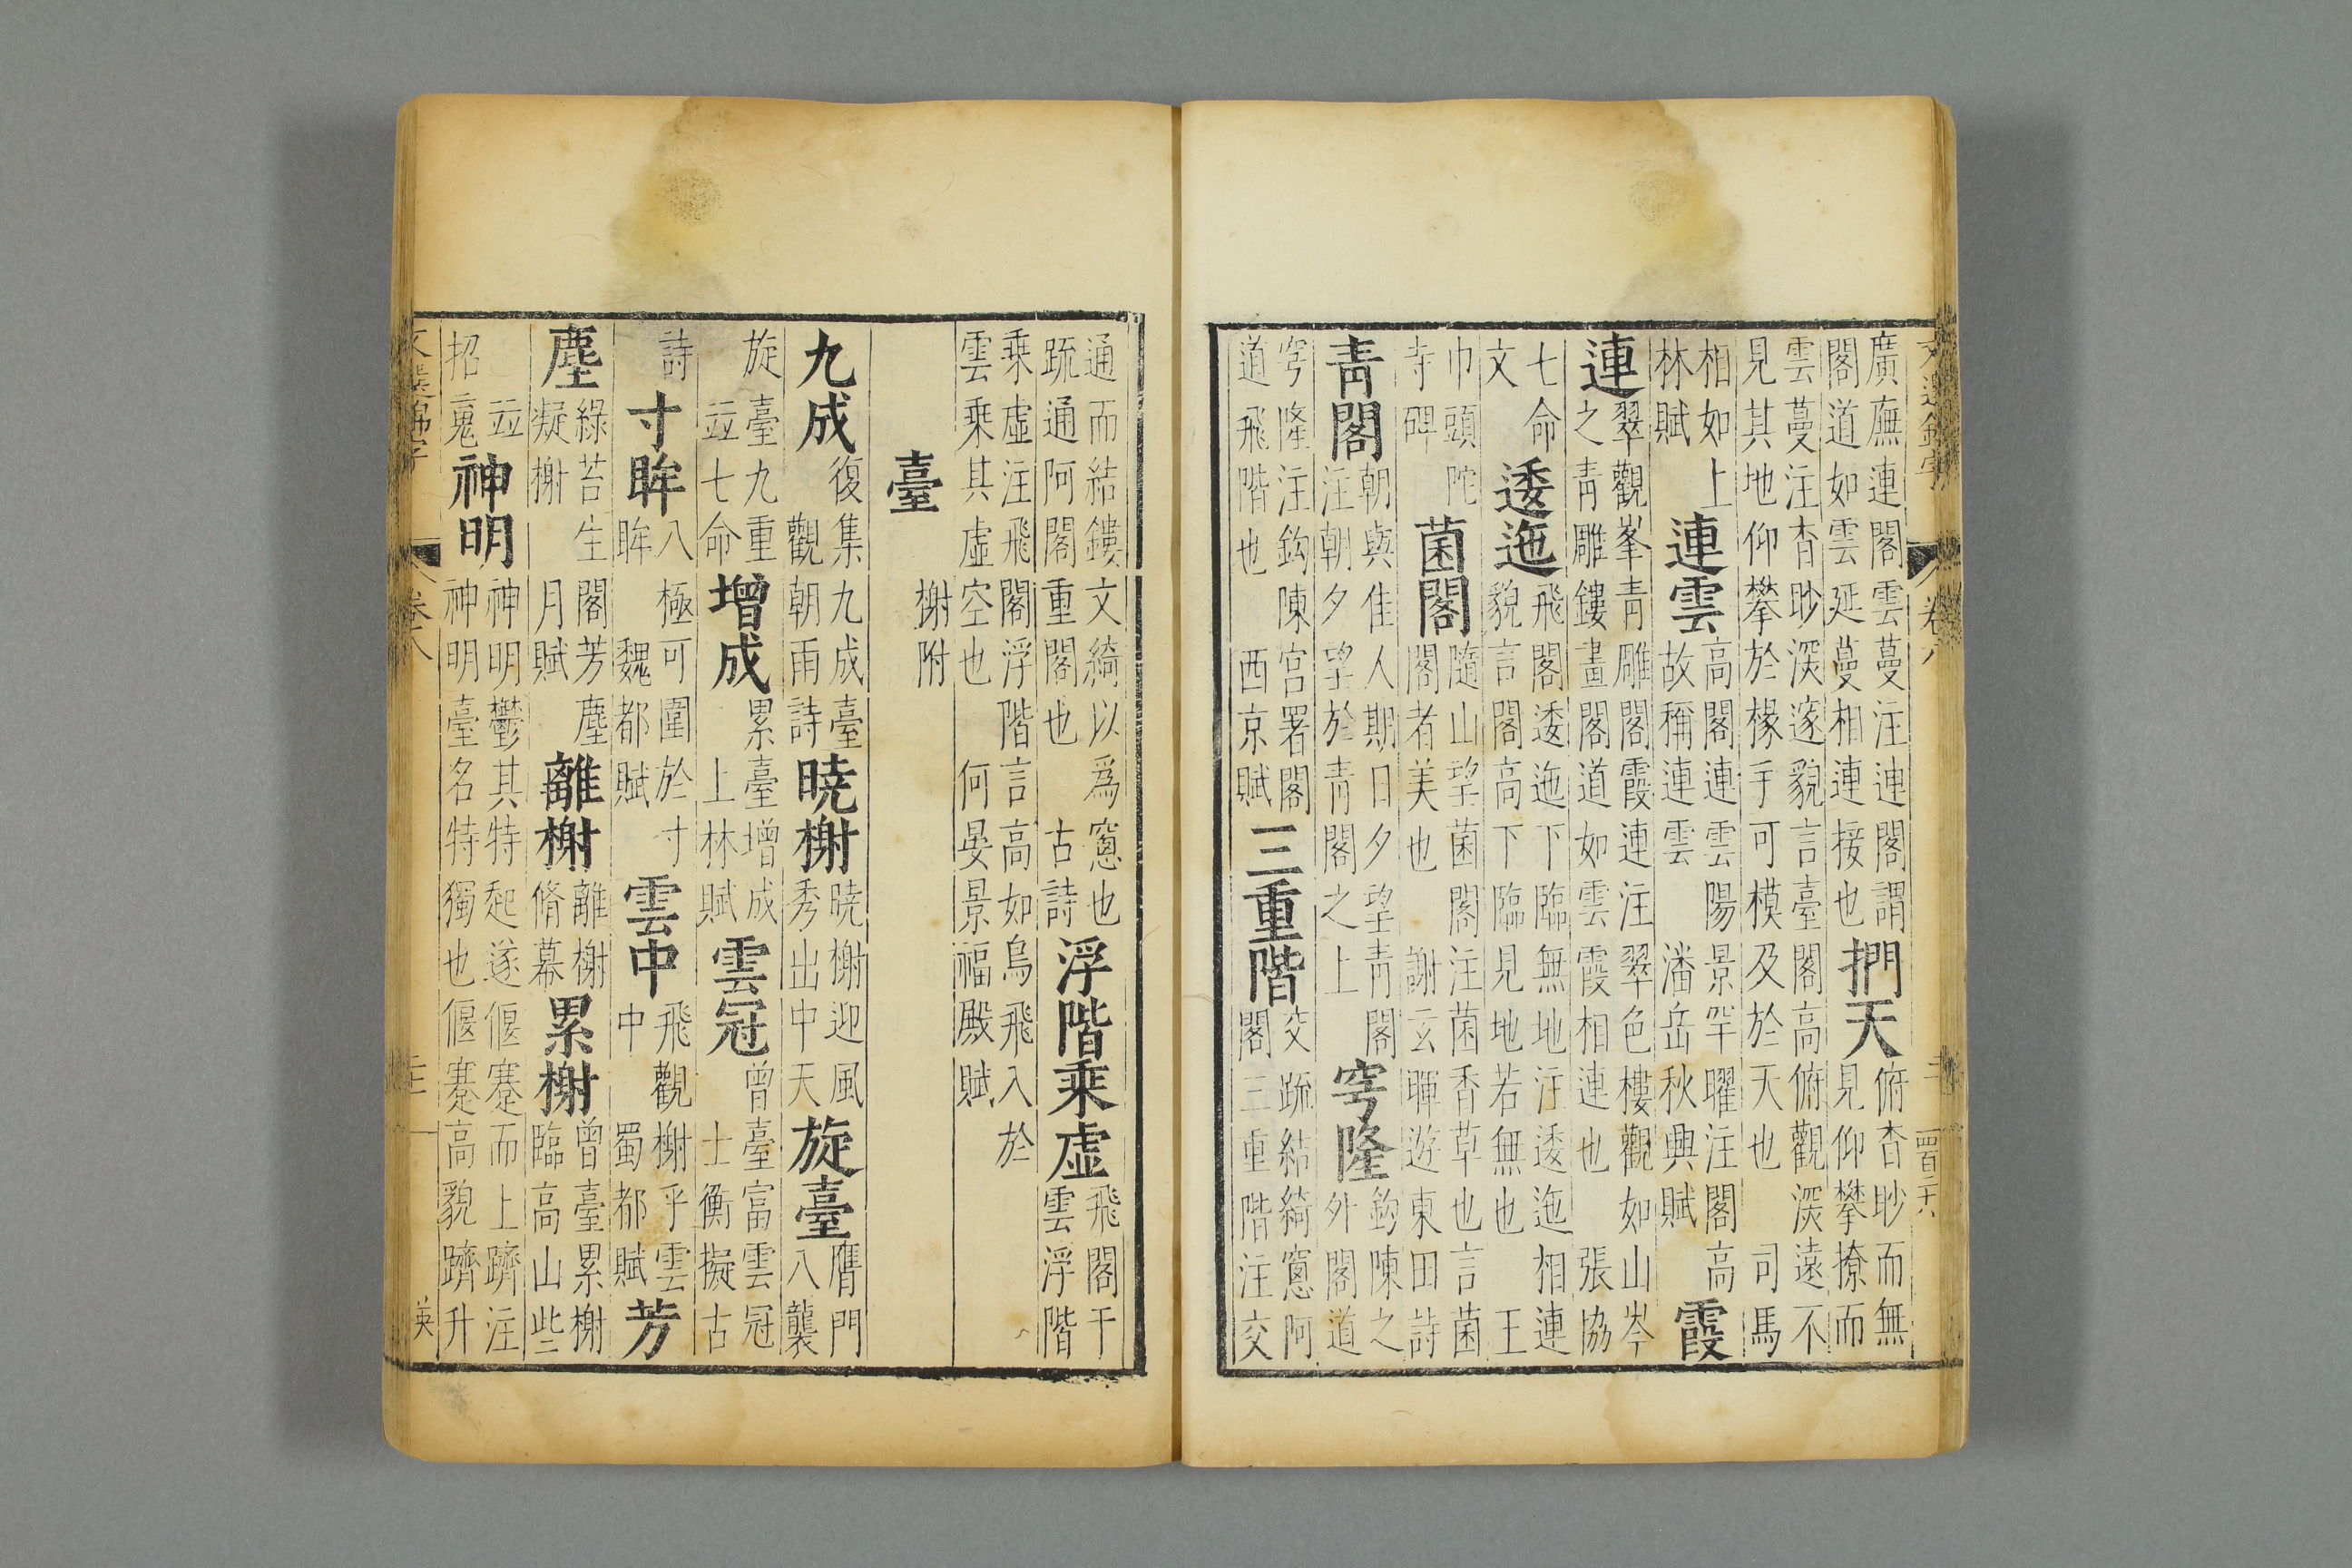 廣廡連閣雲蔓注連閣謂
閣道如雲延蔓相連接也
捫天
俯杳眇而無
見仰攀撩而
雲蔓注杳眇深邃貌言臺閣高俯觀深遠不
見其地仰攀於椽手可模及於天也 司馬
相如上
林賦
連雲
高閣連雲陽景罕曜注閣高
故稱連雲 潘岳秋興賦
霞
連
翠觀峯青雕閣霞連注翠色樓觀如山岑
之青雕鏤畫閣道如雲霞相連也 張協
七命
文
逶迤
飛閣逶迤下臨無地注逶迤相連
貌言閣高下臨見地若無也 王
巾頭陀
寺碑
菌閣
隨山望菌閣注菌香草也言菌
閣者美也 謝玄暉遊東田詩
青閣
朝與佳人期日夕望青閣
注朝夕望於青閣之上
穹隆
鉤陳之
外閣道
穹隆注鉤陳宮署閣
道飛階也 西京賦
三重階
交疏結綺窻阿
閣三重階注交
通而結鏤文綺以爲窻也
疏通阿閣重閣也 古詩
浮階乘虛
飛閣干
雲浮階
乘虛注飛閣浮階言高如鳥飛入於
雲乘其虛空也 何晏景福殿賦
臺
榭附
九成
復集九成臺
觀朝雨詩
曉榭
曉榭迎風
秀出中天
旋臺
膺門
八襲
旋臺九重
竝七命
增成
累臺增成
上林賦
雲冠
曾臺富雲冠
士衡擬古
詩
寸眸
八極可圍於寸
眸 魏都賦
雲中
飛觀榭乎雲
中 蜀都賦
芳
塵
綠苔生閣芳塵
凝榭 月賦
離榭
離榭
脩幕
累榭
曾臺累榭
臨高山些
竝
招䰟
神明
神明鬱其特起遂偃蹇而上躋注
神明臺名特獨也偃蹇高貌躋升
卷八